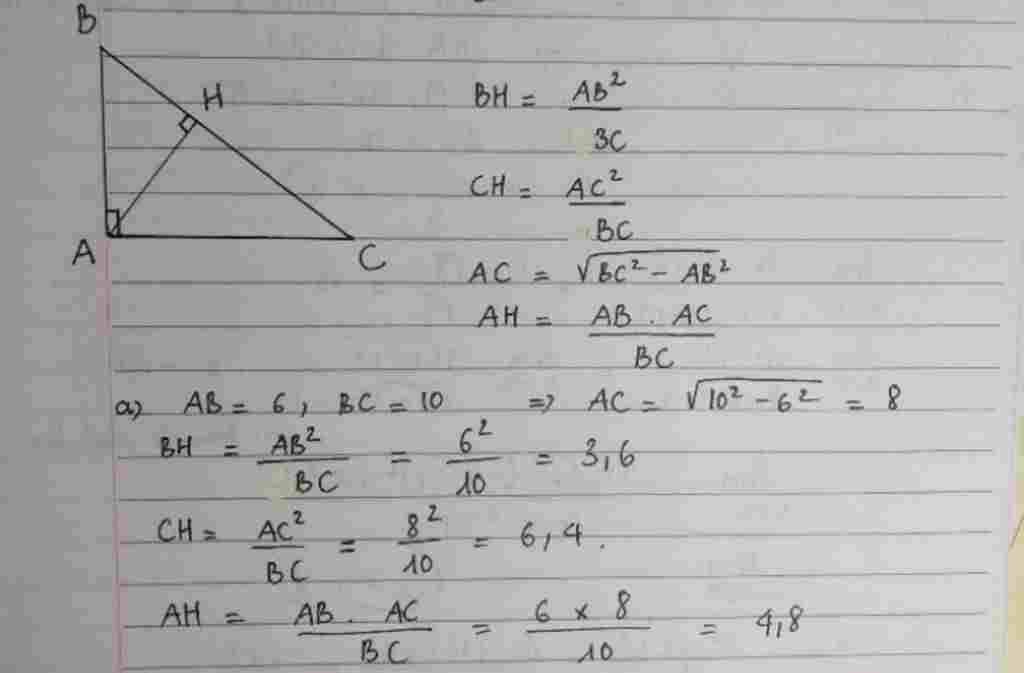 B
H
A
C
BH = AB² / BC
CH = AC² / BC
AC = √(BC² - AB²)
AH = AB . AC / BC
a) AB = 6, BC = 10 => AC = √(10² - 6²) = 8
BH = AB² / BC = 6² / 10 = 3,6
CH = AC² / BC = 8² / 10 = 6,4.
AH = AB . AC / BC = 6 x 8 / 10 = 4,8